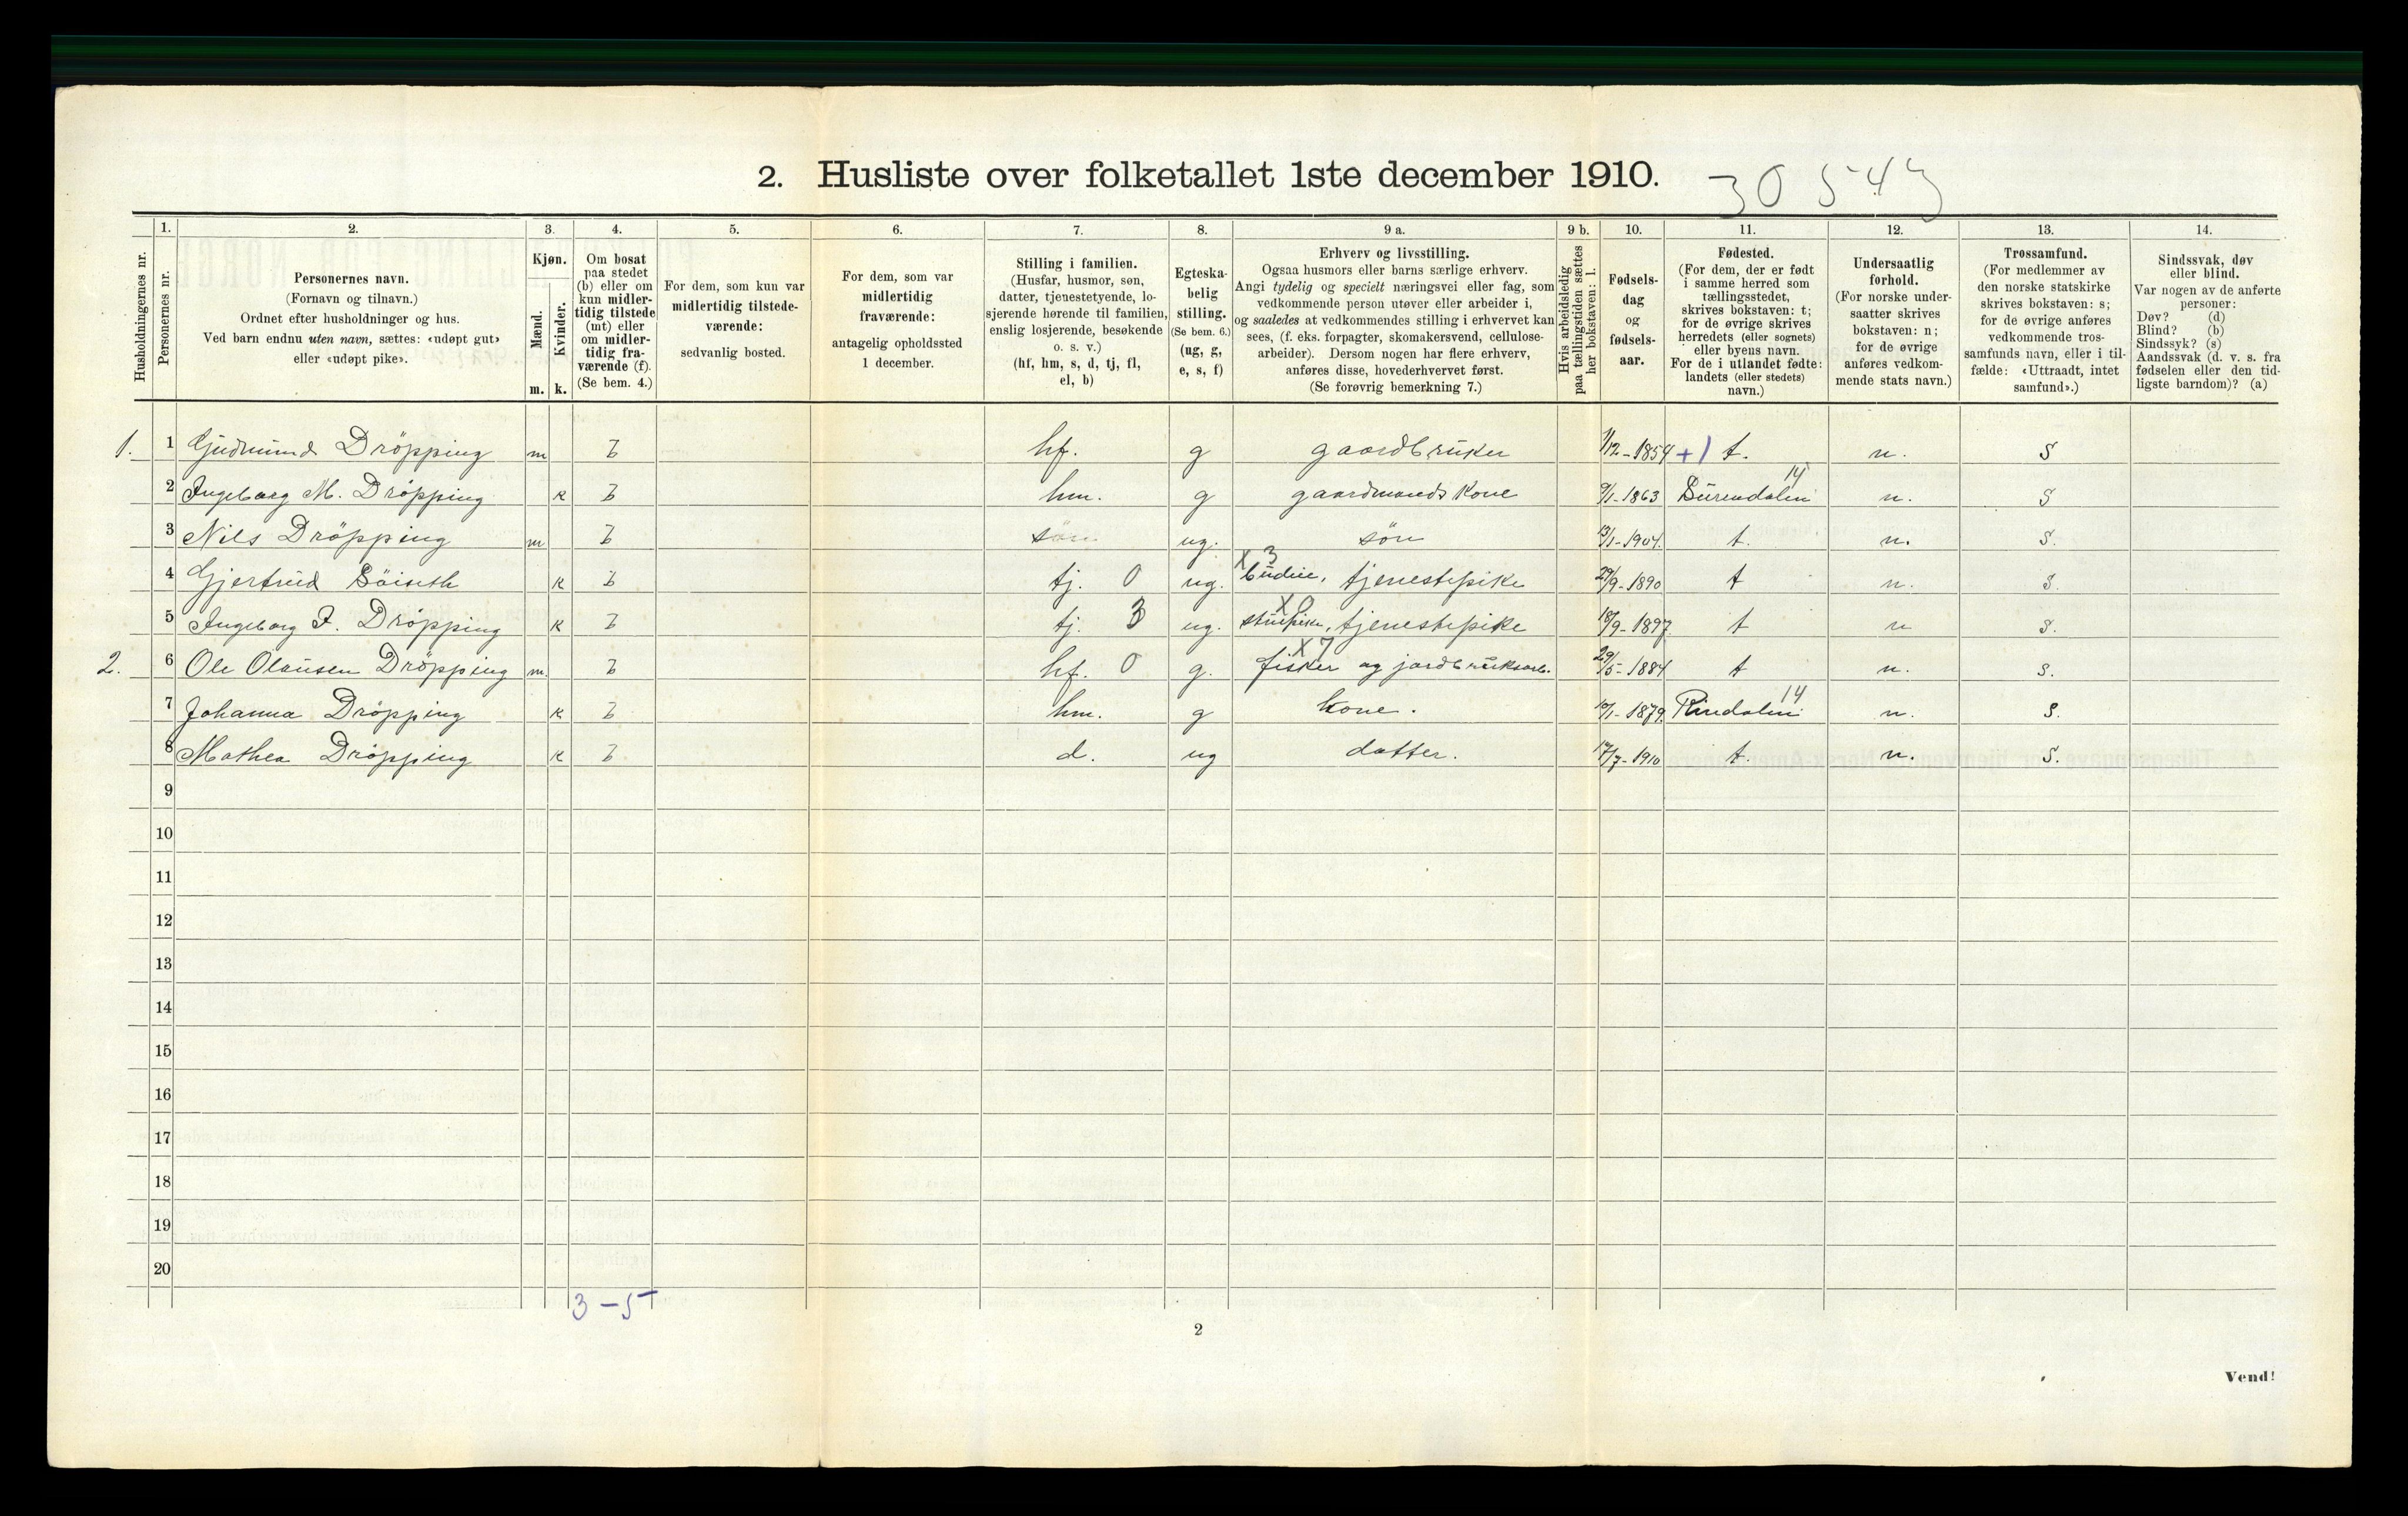 2. Husliste over folketallet 1ste december 1910.
30 543
Husholdningernes nr.
1.
Personernes nr.
2.
Personernes navn.
(Fornavn og tilnavn.)
Ordnet efter husholdninger og hus.
Ved barn endnu uten navn, sættes: «udøpt gut»
eller «udøpt pike».
3.
Kjøn.
Mænd.
Kvinder.
m. k.
4.
Om bosat
paa stedet
(b) eller om
kun midler-
tidig tilstede
(mt) eller
om midler-
tidig fra-
værende (f).
(Se bem. 4.)
5.
For dem, som kun var
midlertidig tilstede-
værende:
sedvanlig bosted.
6.
For dem, som var
midlertidig
fraværende:
antagelig opholdssted
1 december.
7.
Stilling i familien.
(Husfar, husmor, søn,
datter, tjenestetyende, lo-
sjerende hørende til familien,
enslig losjerende, besøkende
o. s. v.)
(hf, hm, s, d, tj, fl,
el, b)
8.
Egteska-
belig
stilling.
(Se bem. 6.)
(ug, g,
e, s, f)
9 a.
Erhverv og livsstilling.
Ogsaa husmors eller barns særlige erhverv.
Angi tydelig og specielt næringsvei eller fag, som
vedkommende person utøver eller arbeider i,
og saaledes at vedkommendes stilling i erhvervet kan
sees, (f. eks. forpagter, skomakersvend, cellulose-
arbeider). Dersom nogen har flere erhverv,
anføres disse, hovederhvervet først.
(Se forøvrig bemerkning 7.)
9 b.
Hvis arbeidsledig
paa tællingstiden sættes
her bokstaven: l.
10.
Fødsels-
dag
og
fødsels-
aar.
11.
Fødested.
(For dem, der er født
i samme herred som
tællingsstedet,
skrives bokstaven: t;
for de øvrige skrives
herredets (eller sognets)
eller byens navn.
For de i utlandet fødte:
landets (eller stedets)
navn.)
12.
Undersaatlig
forhold.
(For norske under-
saatter skrives
bokstaven: n;
for de øvrige
anføres vedkom-
mende stats navn.)
13.
Trossamfund.
(For medlemmer av
den norske statskirke
skrives bokstaven: s;
for de øvrige anføres
vedkommende tros-
samfunds navn, eller i til-
fælde: «Uttraadt, intet
samfund».)
14.
Sindssvak, døv
eller blind.
Var nogen av de anførte
personer:
Døv? (d)
Blind? (b)
Sindssyk? (s)
Aandssvak (d. v. s. fra
fødselen eller den tid-
ligste barndom)? (a)
1. 1 Gudmund Dröpping m b hf. g gaardbruker 1/12-1854 +1 t. n. S
2 Ingeborg M. Dröpping k b hm. g gaardmands kone 9/1-1863 Surendalen 14 n. S
3 Nils Dröpping m b søn ug. søn 13/1-1904. t. n. S.
4 Gjertrud Söiseth k b tj. 0 ug. X 3 budeie, tjenestepike 29/9-1890 t n. S.
5 Ingeborg J. Dröpping k b tj. 3 ug. X 0 stuepike, tjenestepike 18/9-1897. t n S.
2. 6 Ole Olausen Dröpping m. b hf. 0 g. X 7 fisker og jordbruksarb. 29/5-1884 t n. S.
7 Johanna Dröpping k b hm. g kone. 10/1-1879. Rindalen 14 n. S.
8 Mathea Dröpping k b d. ug datter. 17/7-1910 t. n. S.
9
10
11
12
13
14
15
16
17
18
19
20
3 - 5
2
Vend!